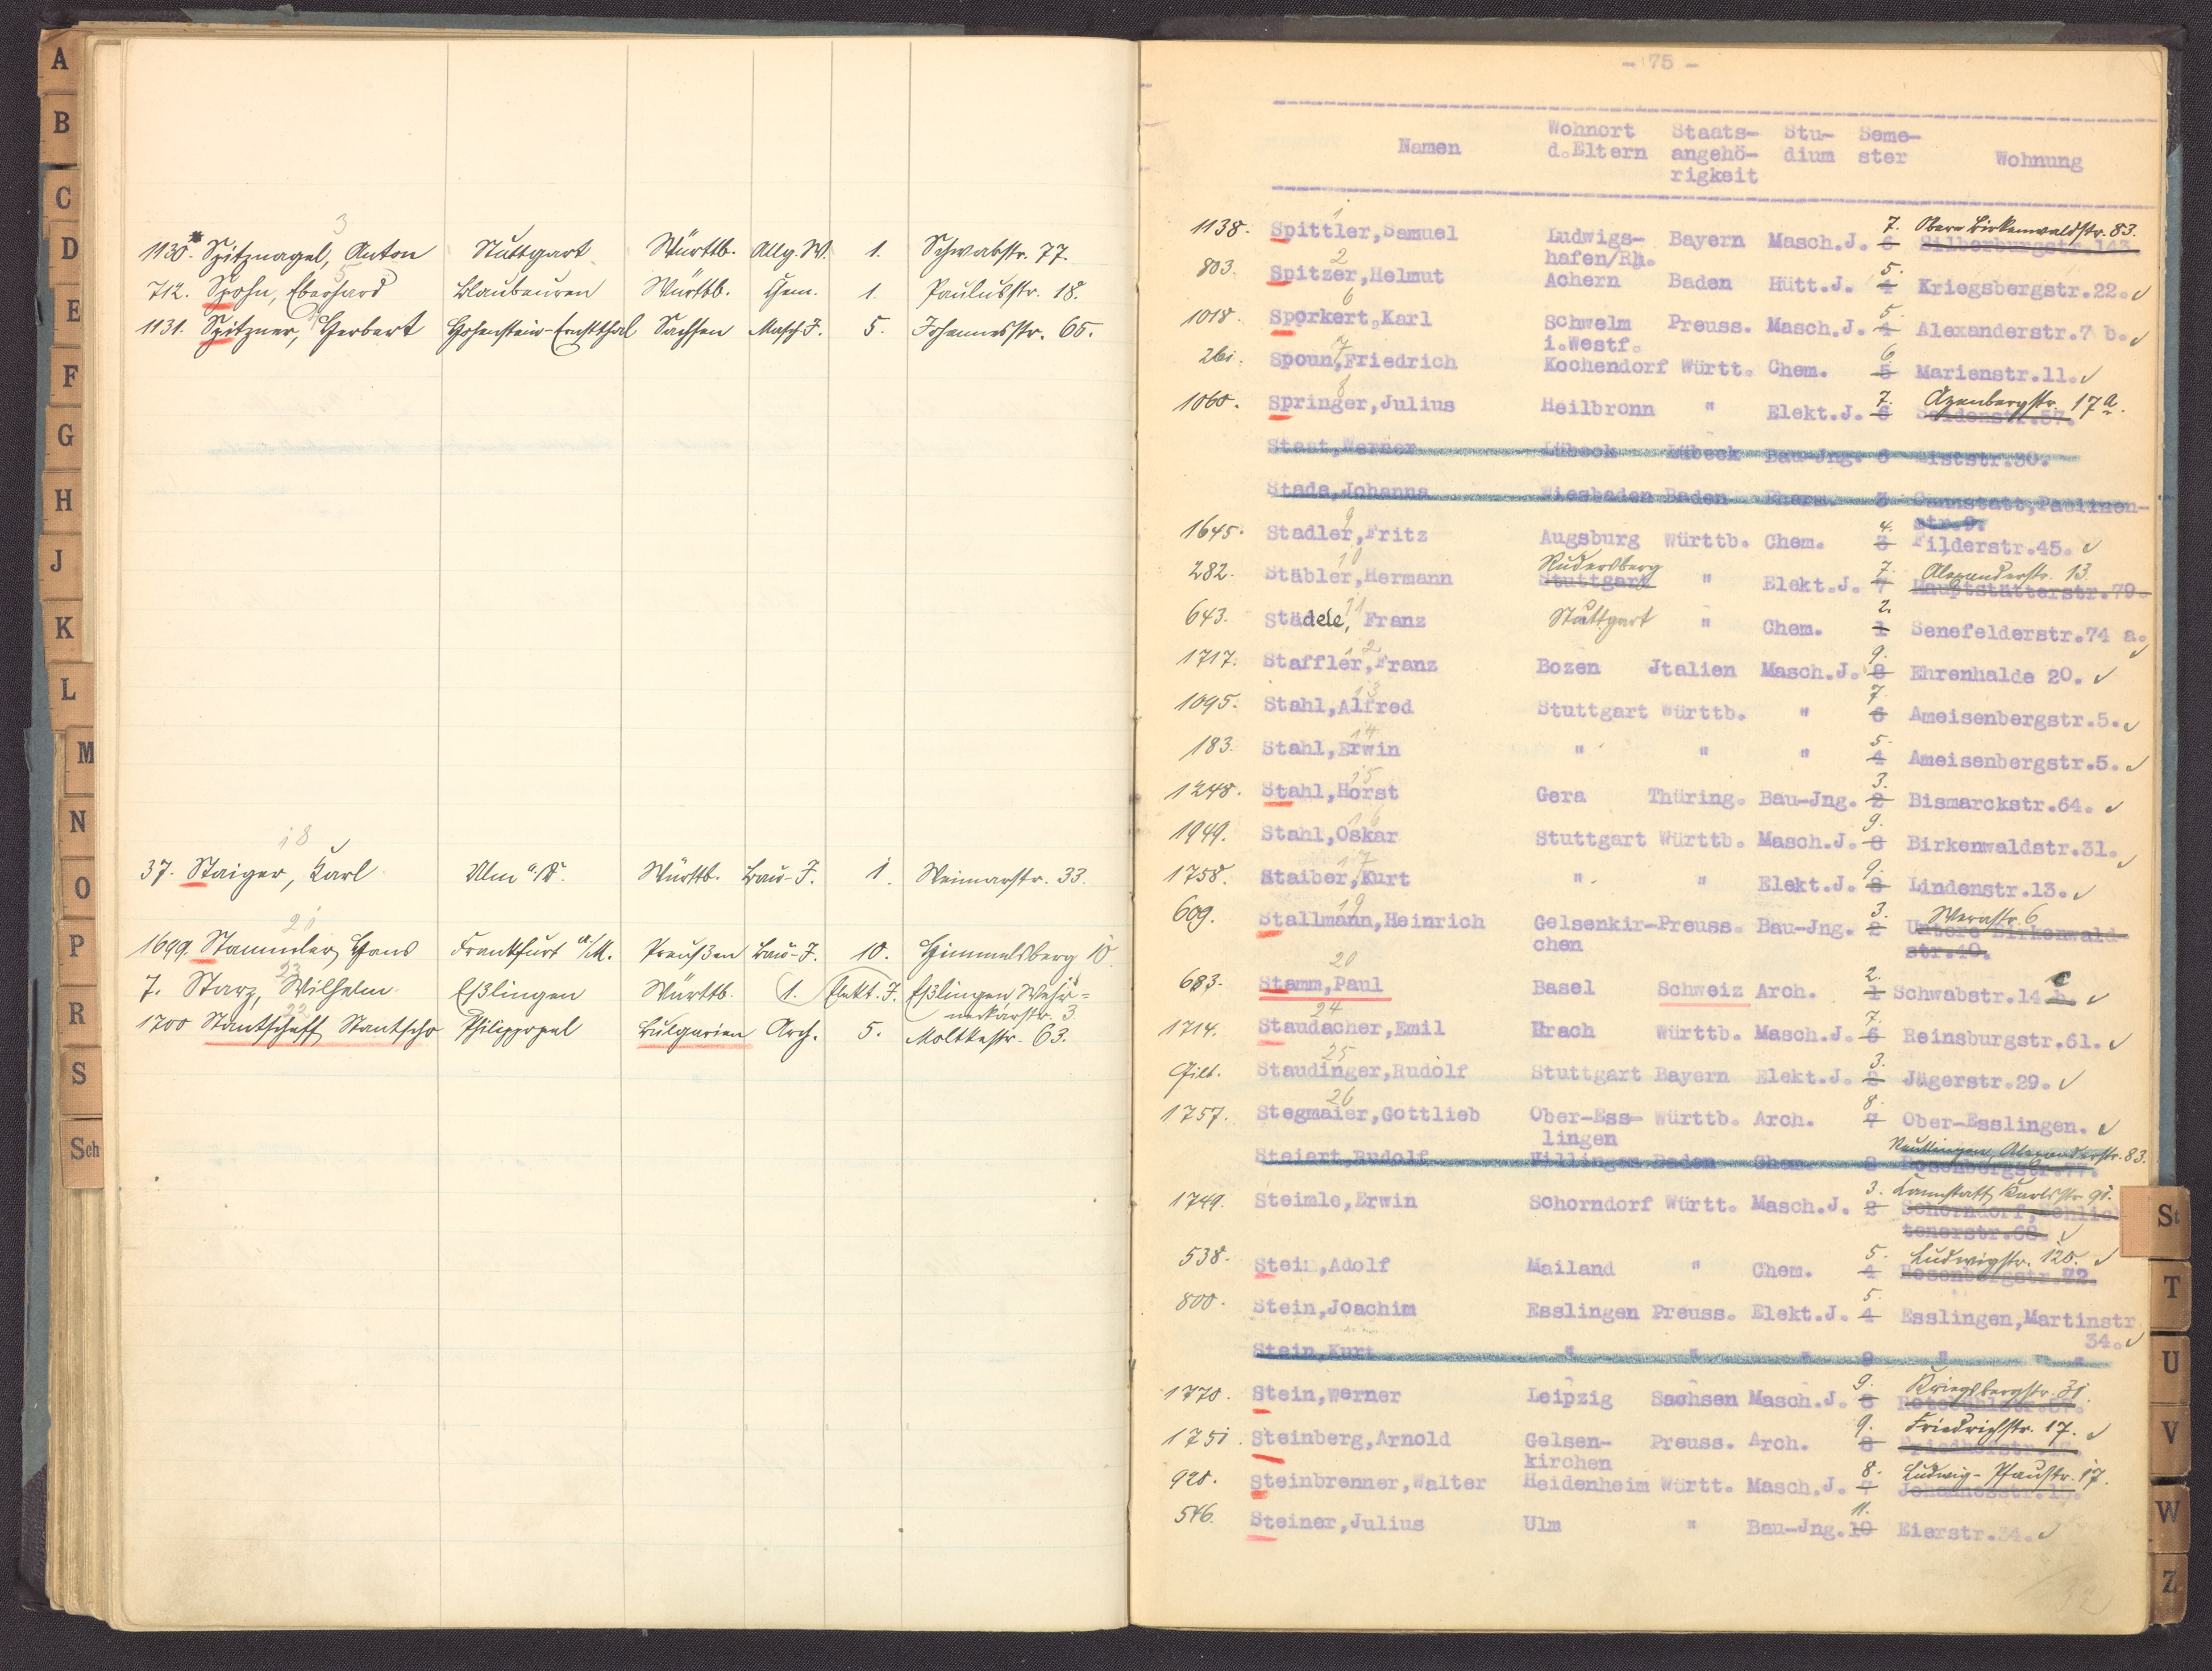 A
B
C
D
E
F
G
H
J
K
L
M
N
O
P
R
S
Sch
3
1130. Spitznagel, Anton Stuttgart Württb. Allg. W. 1. Schwabstr. 77.
5
712. Spohn, Eberhard Blaubeuren Württb. Chem. 1. Paulusstr. 18.
1131. Spitzner, Herbert Hohenstein-Ernstthal Sachsen Masch. J. 5. Johannesstr. 65.
18
37. Staiger, Karl Ulm a/D. Württb. Bau-J. 1. Weimarstr. 33.
21
1699. Stammler, Hans Frankfurt a/M. Preußen Bau-J. 10. Himmelsberg 10
23
7. Starz, Wilhelm Eßlingen Württb. 1. Elekt. J. Eßlingen Wehr-
neckarstr. 3.
22
1700 Stantscheff Stantscho Philippopel Bulgarien Arch. 5. Moltkestr. 63.
- 75 -
Namen Wohnort d.Eltern Staats- angehö- rigkeit Stu- dium Seme- ster Wohnung
1
1138. Spittler,Samuel Ludwigs- Bayern Masch.J. 6 7. Obere Birkenwaldstr. 83.
Silberburgstr.143.
hafen/Rh.
2
803. Spitzer,Helmut Achern Baden Hütt.J. 4 5. Kriegsbergstr.22.
6
1018. Sporkert,Karl Schwelm Preuss. Masch.J. 4 5. Alexanderstr.7 b.
i.Westf.
7
261. Spoun,Friedrich Kochendorf Württ. Chem. 5 6. Marienstr.11.
8
1060. Springer,Julius Heilbronn " Elekt.J. 6 7. Azenbergstr. 17 a.
Seidenstr.57.
Staat,Werner Lübeck Lübeck Bau-Jng. 6 Liststr.30.
Stade,Johanna Wiesbaden Baden Pharm. 3 Cannstatt,Paulinen-
str.9.
9
1645. Stadler,Fritz Augsburg Württb. Chem. 3 4. Filderstr.45.
10
282. Stäbler,Hermann Stuttgart Rudersberg " Elekt.J. 7 7. Alexanderstr. 13.
Hauptstätterstr.79.
11
643. Städele, Franz Stuttgart " Chem. 1 2. Senefelderstr.74 a.
12
1717. Staffler,Franz Bozen Jtalien Masch.J. 8 9. Ehrenhalde 20.
13
1095. Stahl,Alfred Stuttgart Württb. " 6 7. Ameisenbergstr.5.
14
183. Stahl,Erwin " " " 4 5. Ameisenbergstr.5.
15
1248. Stahl,Horst Gera Thüring. Bau-Jng. 2 3. Bismarckstr.64.
16
1949. Stahl,Oskar Stuttgart Württb. Masch.J. 8 9. Birkenwaldstr.31.
17
1758. Staiber,Kurt " " Elekt.J. 8 9. Lindenstr.13.
19
609. Stallmann,Heinrich Gelsenkir- Preuss. Bau-Jng. 2 3. Werastr. 6
chen Untere Birkenwald-
str.10.
20
683. Stamm,Paul Basel Schweiz Arch. 1 2. Schwabstr.14 b. c
24
1714. Staudacher,Emil Urach Württb. Masch.J. 6 7. Reinsburgstr.61.
25
Gilt. Staudinger,Rudolf Stuttgart Bayern Elekt.J. 2 3. Jägerstr.29.
26
1757. Stegmaier,Gottlieb Ober-Ess- Württb. Arch. 7 8. Ober-Esslingen.
lingen
Steiert,Rudolf Villingen Baden Chem. 8 Reutlingen, Alexanderstr. 83.
Rosenbergstr.77.
1749. Steimle,Erwin Schorndorf Württ. Masch.J. 2 3. Cannstatt, Karlstr. 91.
Schorndorf,Schlich
tenerstr.68.
538. Stein,Adolf Mailand " Chem. 4 5. Ludwigstr. 120.
Rosenbergstr.72.
800. Stein,Joachim Esslingen Preuss. Elekt.J. 4 5. Esslingen,Martinstr
34.
Stein,Kurt " " " 9 " "
1770. Stein,Werner Leipzig Sachsen Masch.J. 8 9. Kriegsbergstr. 31.
1751. Steinberg,Arnold Gelsen- Preuss. Arch. 8 9. Friedrichstr. 17.
kirchen
920. Steinbrenner,Walter Heidenheim Württ. Masch.J. 7 8. Ludwig-Pfaustr. 17.
Johannesstr.19.
546. Steiner,Julius Ulm " Bau-Jng. 10 11. Eierstr.34.
St
T
U
V
W
Z